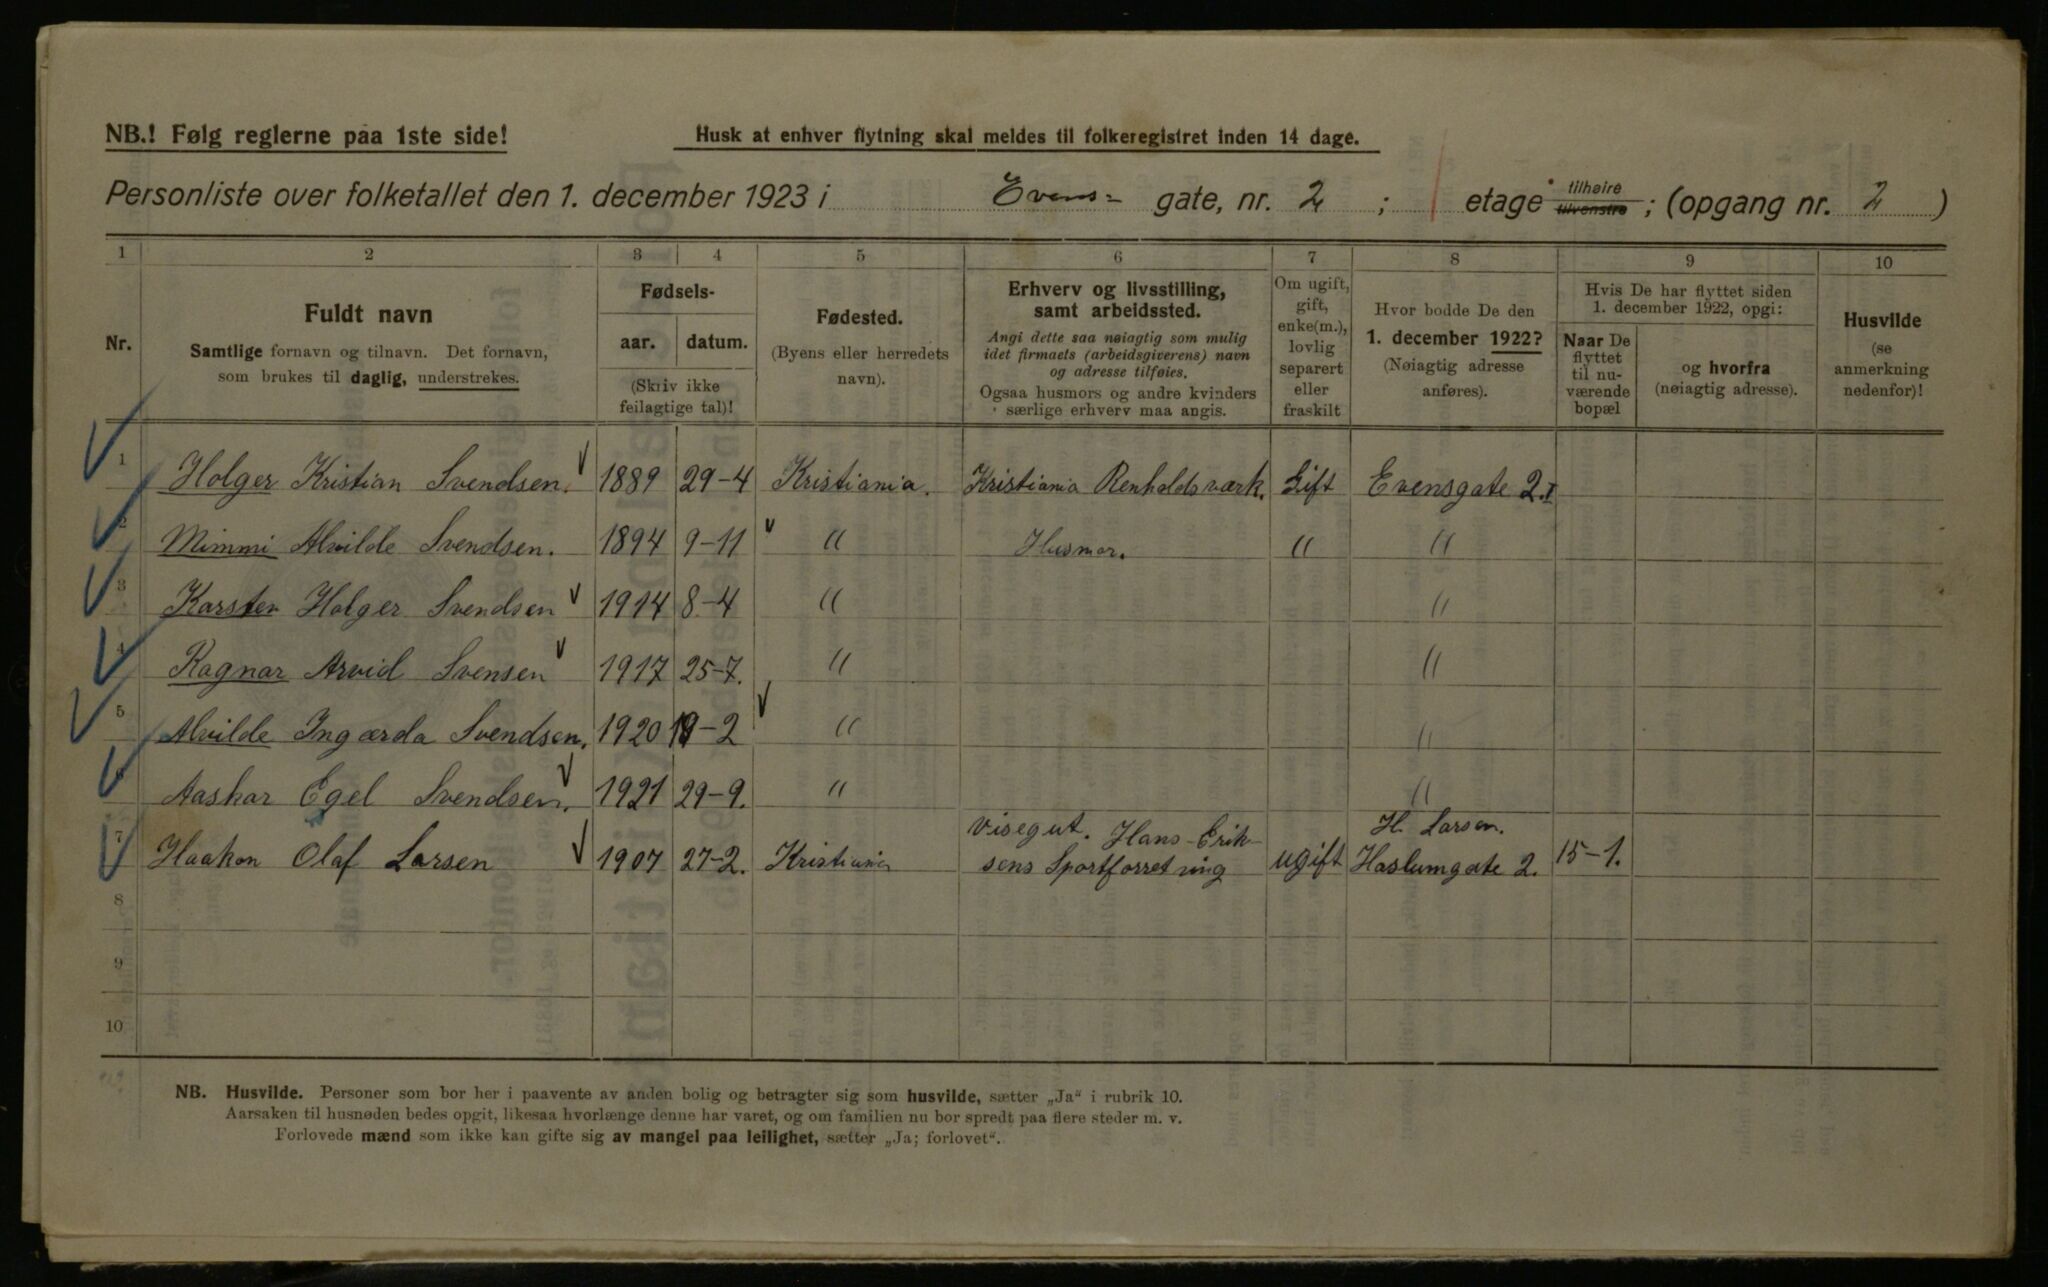 NB.! Følg reglerne paa 1ste side!
Husk at enhver flytning skal meldes til folkeregistret inden 14 dage.
Personliste over folketallet den 1. december 1923 i Evens- gate, nr. 2 ; 1 etage tilhøire tilvenstre ; (opgang nr. 2 )
1 2 3 4 5 6 7 8 9 10
Nr.
Fuldt navn
Samtlige fornavn og tilnavn. Det fornavn,
som brukes til daglig, understrekes.
Fødsels-
aar. datum.
(Skriv ikke
feilagtige tal)!
Fødested.
(Byens eller herredets
navn).
Erhverv og livsstilling,
samt arbeidssted.
Angi dette saa nøiagtig som mulig
idet firmaets (arbeidsgiverens) navn
og adresse tilføies.
Ogsaa husmors og andre kvinders
særlige erhverv maa angis.
Om ugift,
gift,
enke(m.),
lovlig
separert
eller
fraskilt
Hvor bodde De den
1. december 1922?
(Nøiagtig adresse
anføres).
Hvis De har flyttet siden
1. december 1922, opgi:
Naar De
flyttet
til nu-
værende
bopæl
og hvorfra
(nøiagtig adresse).
Husvilde
(se
anmerkning
nedenfor)!
1 Holger Kristian Svendsen. 1889 29-4 Kristiania. Kristiania Renholdsværk. Gift Evensgate 2.I
2 Mimmi Alvilde Svendsen. 1894 9-11 " Husmor. " "
3 Karsten Holger Svendsen 1914 8-4 " "
4 Ragnar Arvid Svensen 1917 25-7. " "
5 Alvilde Ingærda Svendsen. 1920 19-2 " "
6 Aaskar Egel Svendsen. 1921 29-9. " "
7 Haakon Olaf Larsen 1907 27-2. Kristiania Visegut. Hans Erik-
sens Sportforretning ugift H. Larsen.
Haslumgate 2. 15-1.
8
9
10
NB. Husvilde. Personer som bor her i paavente av anden bolig og betragter sig som husvilde, sætter „Ja" i rubrik 10.
Aarsaken til husnøden bedes opgit, likesaa hvorlænge denne har varet, og om familien nu bor spredt paa flere steder m. v.
Forlovede mænd som ikke kan gifte sig av mangel paa leilighet, sætter „Ja; forlovet".